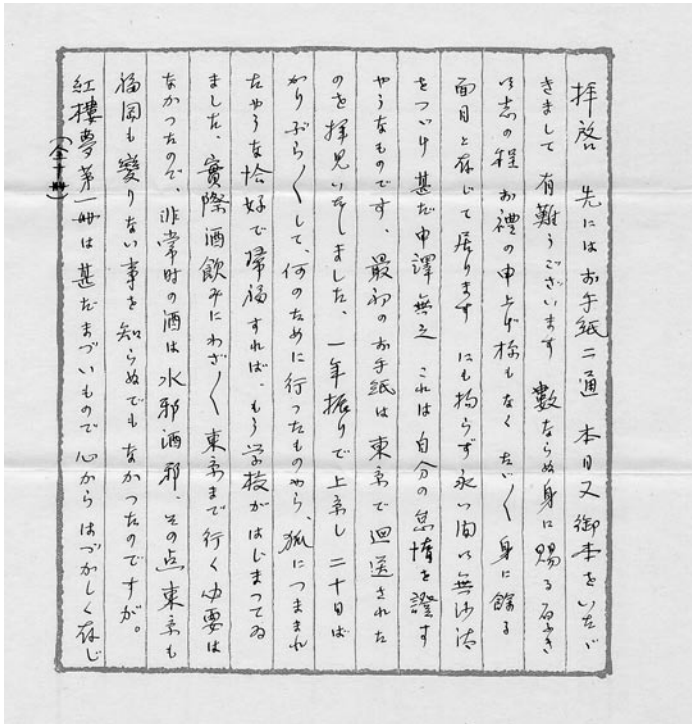 拝啓　先にはお手紙二通　本日又御本をいたゞ
きまして　有難うございます　數ならぬ身に賜る
志の程　お禮の申上げ様もなく　たゞ〳〵身に餘る
面目と存じて居ります　にも拘らず永い間御無沙汰
をつゞけ甚だ申譯無之　これは自分の怠惰を證す
やうなものです、最初のお手紙は東京で廻送された
のを拝見いたしました、一年振りで上京し二十日ば
かりぶら〳〵して、何のために行つたものやら、狐につままれ
たやうな恰好で帰福すれば、もう学校がはじまつてゐ
ました、實際酒飲みにわざ〳〵東京まで行く必要は
なかつたので、非常时の酒は水邪酒邪、その点東京も
福岡も變りない事を知らぬでもなかつたのですが。
紅樓夢第一冊は甚だまづいもので心からはづかしく存じ
（全十冊）